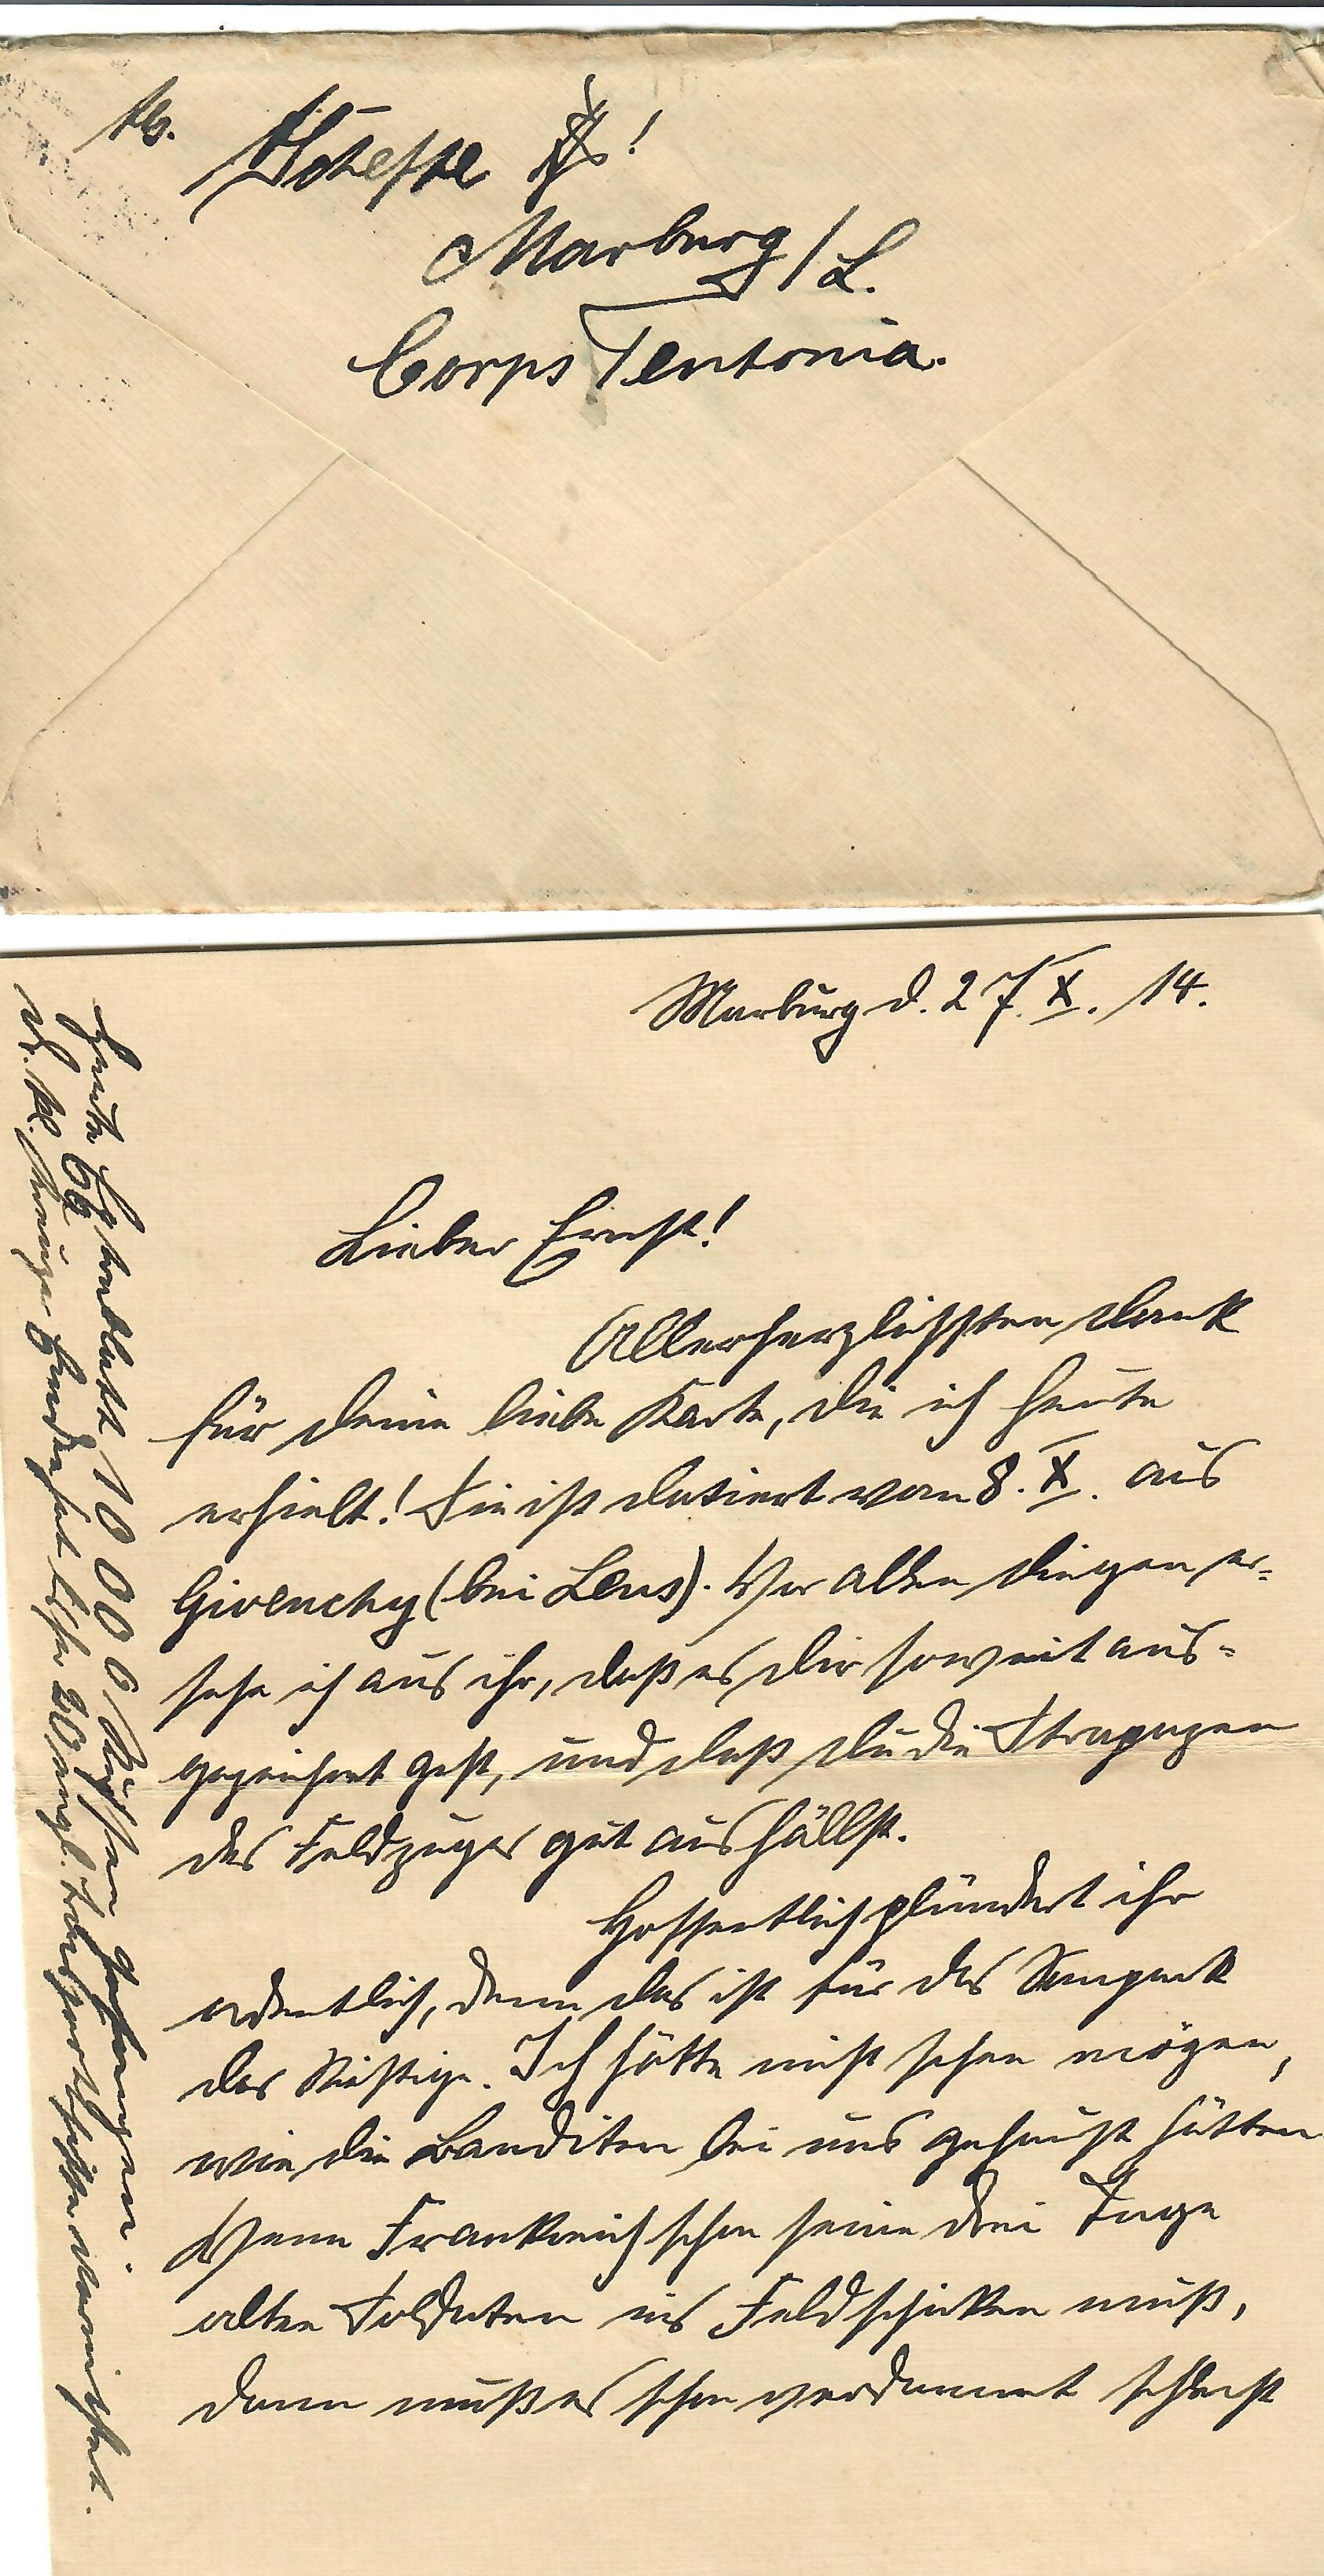 Marburg/L.
Corps Teutonia.
Marburg d. 27. X. 14.
Lieber Ernst!
Allerherzlichsten Dank
für Deine liebe Karte, die ich heute
erhielt! Sie ist datiert vom 8. X. aus
Givenchy (bei Lens). Vor allen Dingen er-
sehe ich aus ihr, daß es Dir soweit aus-
gezeichnet geht, und daß Du die Strapazen
des Feldzuges gut aushällst.
Hoffentlich plündert ihr
ordentlich, denn das ist für das Saupack
das Richtige. Ich hätte nicht sehen mögen,
wie die Banditen bei uns gehaust hätten
Wenn Frankreich schon seine drei Tage
alten Soldaten ins Feld schicken muß,
dann muß es schon verdammt schlecht
Heute Extrablatt 10 000 Russen gefangen.
U. kl. Kreuzer Emden hat bisher 20 engl.